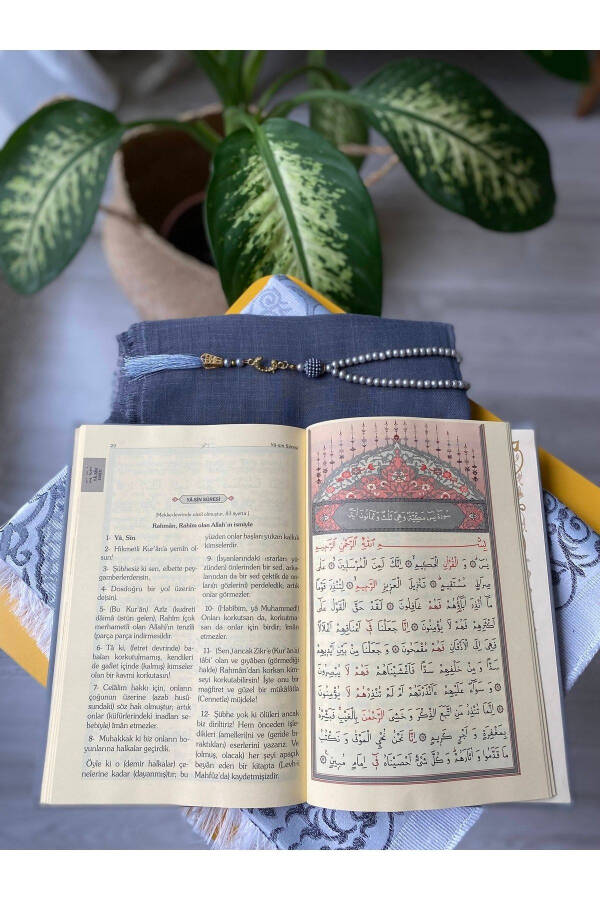 20
Yâ-sîn Sûresi
YÂ-SÎN SÛRESİ
[Mekke devrinde nâzil olmuştur, 83 âyettir.]
Rahmân, Rahîm olan Allah'ın ismiyle
1- Yâ, Sîn
2- Hikmetli Kur'ân'a yemîn ol-
sun!
3- Şübhesiz ki sen, elbette pey-
gamberlerdensin,
4- Dosdoğru bir yol üzerin-
de(sin).
5- (Bu Kur'ân) Azîz (kudreti
dâimâ üstün gelen), Rahîm (çok
merhametli olan Allah)'ın tenzîli
(parça parça indirmesi)dir.
6- Tâ ki, (fetret devrinde) ba-
baları korkutulmamış, kendileri
de gaflet içinde (kalmış) kimseler
olan bir kavmi korkutasın!
7- Celâlim hakkı için, onların
çoğunun üzerine (azab husû-
sundaki) söz hak olmuştur; artık
onlar (küfürlerindeki inadları se-
bebiyle) îmân etmezler.
8- Muhakkak ki biz onların bo-
yunlarına halkalar geçirdik.
Öyle ki o (demir halkalar) çe-
nelerine kadar (dayanmış)tır; bu
yüzden onlar başları yukarı kalkık
kimselerdir.
9- (İsyanlarındaki ısrarları yü-
zünden) önlerinden bir sed, arka-
larından da bir sed çektik de on-
ların gözlerini) perdeledik, artık
onlar görmezler.
10- (Habîbim, yâ Muhammed!)
Onları korkutsan da, korkutma-
san da onlar için birdir, îmân
etmezler.
11- (Sen,) ancak Zikr'e (Kur'ân'a)
tâbi' olan ve gıyâben (görmediği
hâlde) Rahmân'dan korkan kim-
seyi korkutabilirsin! İşte onu bir
mağfiret ve güzel bir mükâfâtla
(Cennetle) müjdele!
12- Şübhe yok ki ölüleri ancak
biz diriltiriz! Hem önceden işle-
dikleri (amellerini) ve (geride bı-
raktıkları) eserlerini yazarız. Ve
(olmuş, olacak) her şeyi apaçık
beyân eden bir kitapta (Levh-i
Mahfûz'da) kaydetmişizdir.
سورة يس مكية وهي ثلاث وثمانون آية
بِسْمِ اللّٰهِ الرَّحْمٰنِ الرَّحِيمِ
يٰسٓ ۝ وَالْقُرْاٰنِ الْحَكِيمِ ۝ اِنَّكَ لَمِنَ الْمُرْسَلِينَ ۝ عَلٰى
صِرَاطٍ مُسْتَقِيمٍ ۝ تَنْزِيلَ الْعَزِيزِ الرَّحِيمِ ۝ لِتُنْذِرَ قَوْمًا
مَٓا اُنْذِرَ اٰبَٓاؤُهُمْ فَهُمْ غَافِلُونَ ۝ لَقَدْ حَقَّ الْقَوْلُ عَلٰٓى
اَكْثَرِهِمْ فَهُمْ لَا يُؤْمِنُونَ ۝ اِنَّا جَعَلْنَا فٖٓى اَعْنَاقِهِمْ اَغْلَالًا
فَهِىَ اِلَى الْاَذْقَانِ فَهُمْ مُقْمَحُونَ ۝ وَجَعَلْنَا مِنْ بَيْنِ اَيْدِيهِمْ
سَدًّا وَمِنْ خَلْفِهِمْ سَدًّا فَاَغْشَيْنَاهُمْ فَهُمْ لَا يُبْصِرُونَ
۝ وَسَوَٓاءٌ عَلَيْهِمْ ءَاَنْذَرْتَهُمْ اَمْ لَمْ تُنْذِرْهُمْ لَا يُؤْمِنُونَ ۝
اِنَّمَا تُنْذِرُ مَنِ اتَّبَعَ الذِّكْرَ وَخَشِىَ الرَّحْمٰنَ بِالْغَيْبِ فَبَشِّرْهُ
بِمَغْفِرَةٍ وَاَجْرٍ كَرِيمٍ ۝ اِنَّا نَحْنُ نُحْيِ الْمَوْتٰى وَنَكْتُبُ
مَا قَدَّمُوا وَاٰثَارَهُمْ وَكُلَّ شَىْءٍ اَحْصَيْنَاهُ فٖٓى اِمَامٍ مُبِينٍ ۝